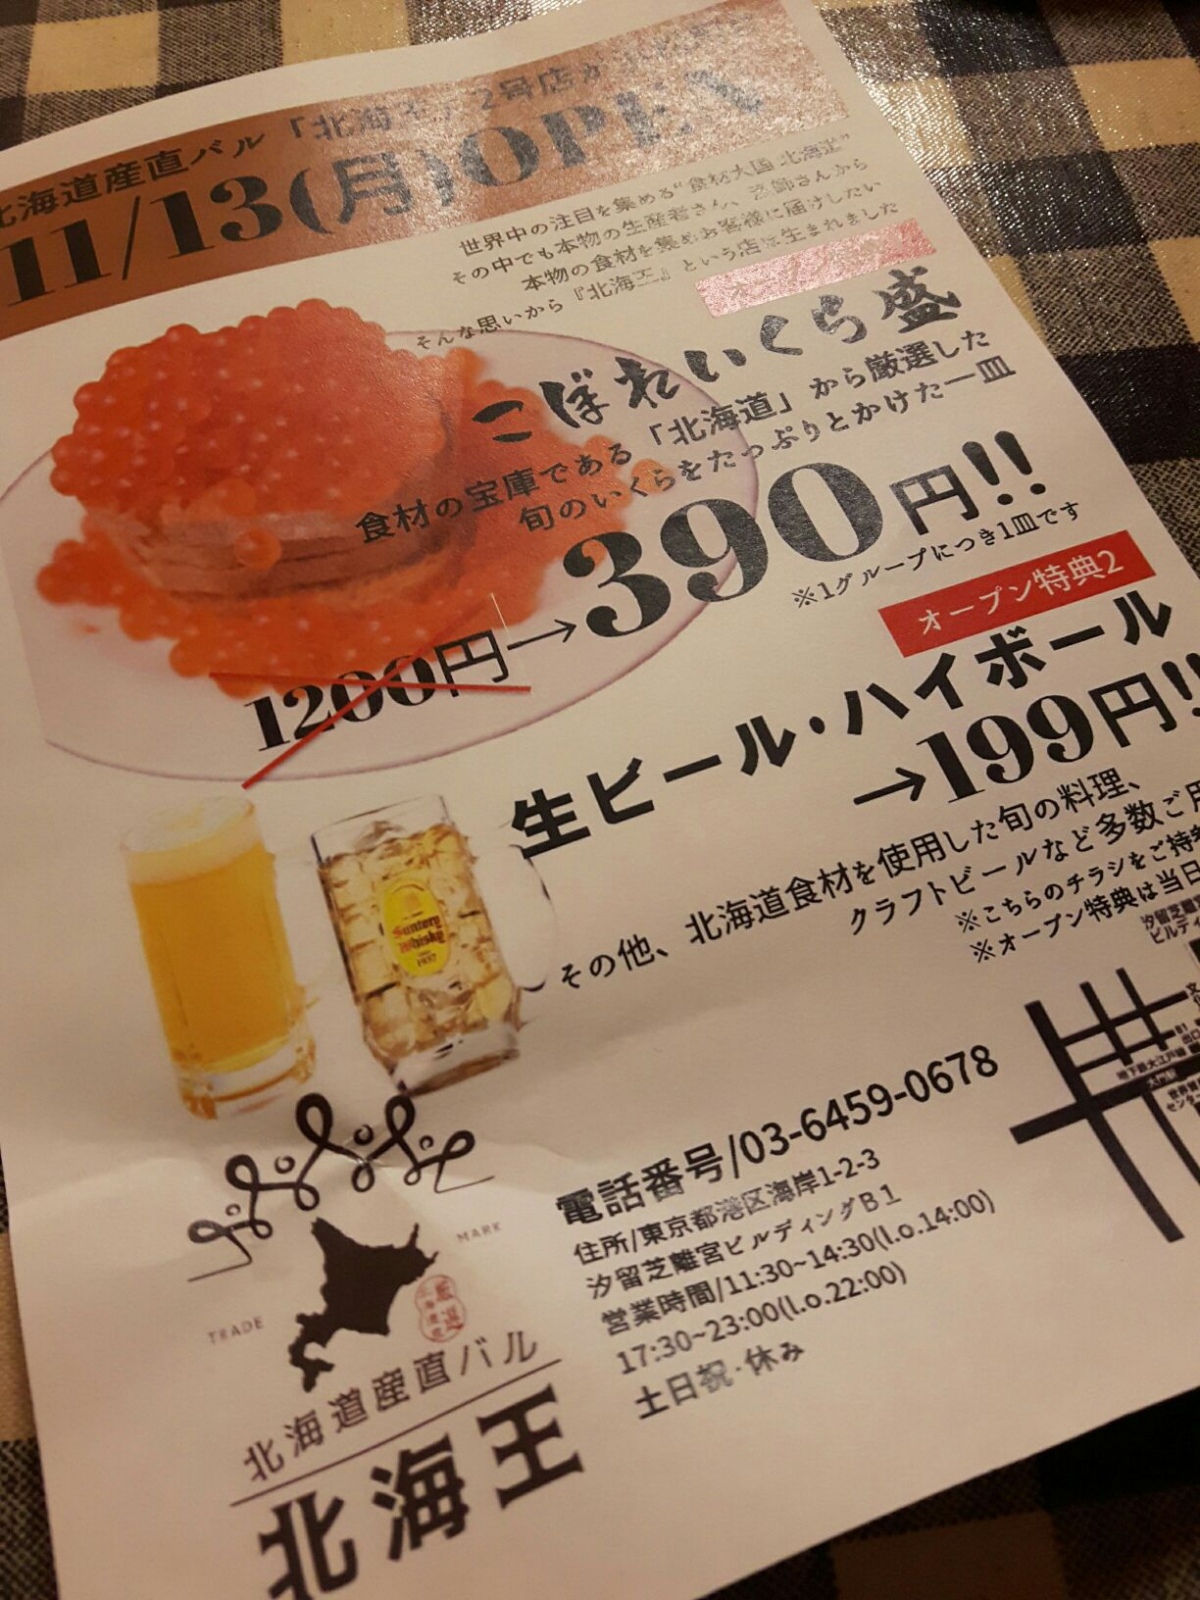 北海道産直バル「北海王」2号店が
11/13(月)OPEN
世界中の注目を集める"食材大国 北海道"
その中でも本物の生産者さん、漁師さんから
本物の食材を集めお客様に届けしたい
そんな思いから『北海王』という店は生まれました
こぼれいくら盛
食材の宝庫である「北海道」から厳選した
旬のいくらをたっぷりとかけた一皿
1200円→390円!!
※1グループにつき1皿です
オープン特典2
生ビール・ハイボール
→199円!!
Suntory
Whisky
1937
その他、北海道食材を使用した旬の料理、
クラフトビールなど多数ご用
※こちらのチラシをご持
※オープン特典は当日
汐留芝離宮
ビルディ
地下鉄大江戸線
世界貿
センター
電話番号/03-6459-0678
住所/東京都港区海岸1-2-3
汐留芝離宮ビルディングB1
営業時間/11:30~14:30(l.o.14:00)
17:30~23:00(l.o.22:00)
土日祝・休み
TRADE
MARK
厳選
北海道産直バル
北海王